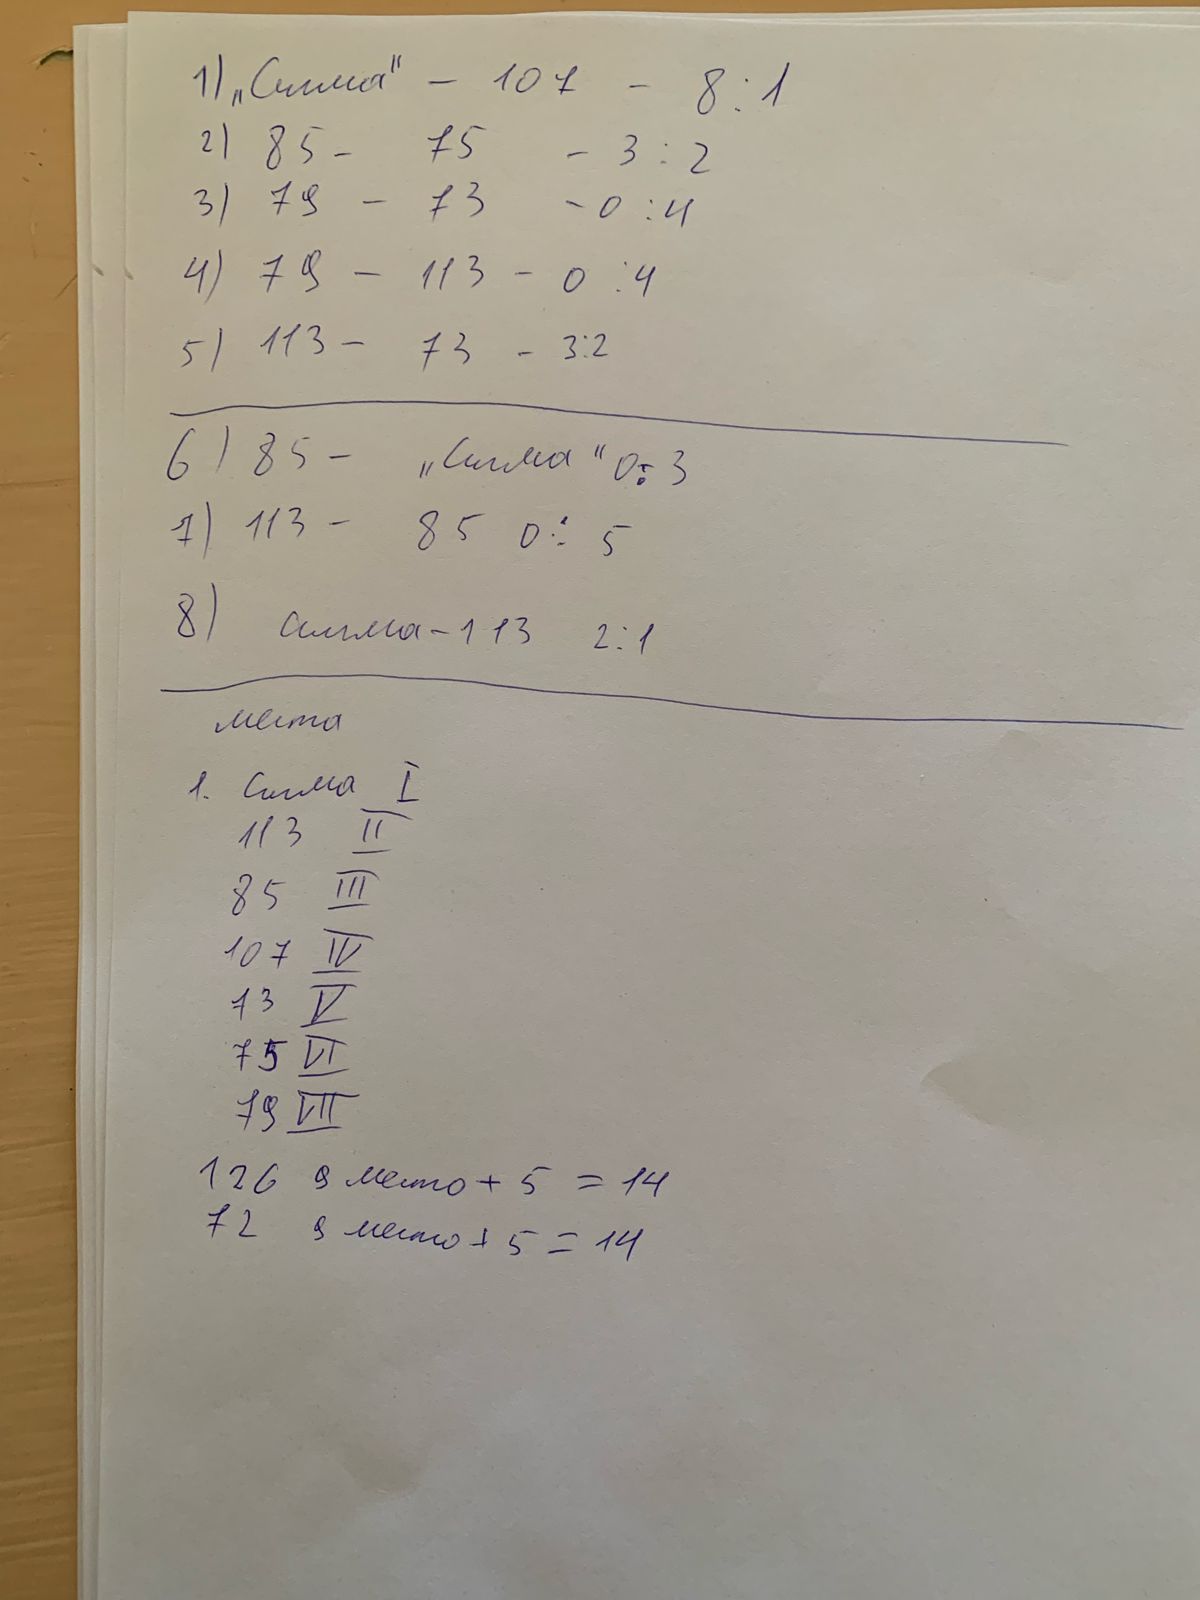 1) „Сигма" - 107 - 8:1
2) 85 - 75 - 3:2
3) 79 - 73 - 0:4
4) 79 - 113 - 0:4
5) 113 - 73 - 3:2
6) 85 - „Сигма" 0:3
7) 113 - 85 0:5
8) Сигма - 113 2:1
места
1. Сигма I
113 II
85 III
107 IV
73 V
75 VI
79 VII
126 9 место + 5 = 14
72 9 место + 5 = 14